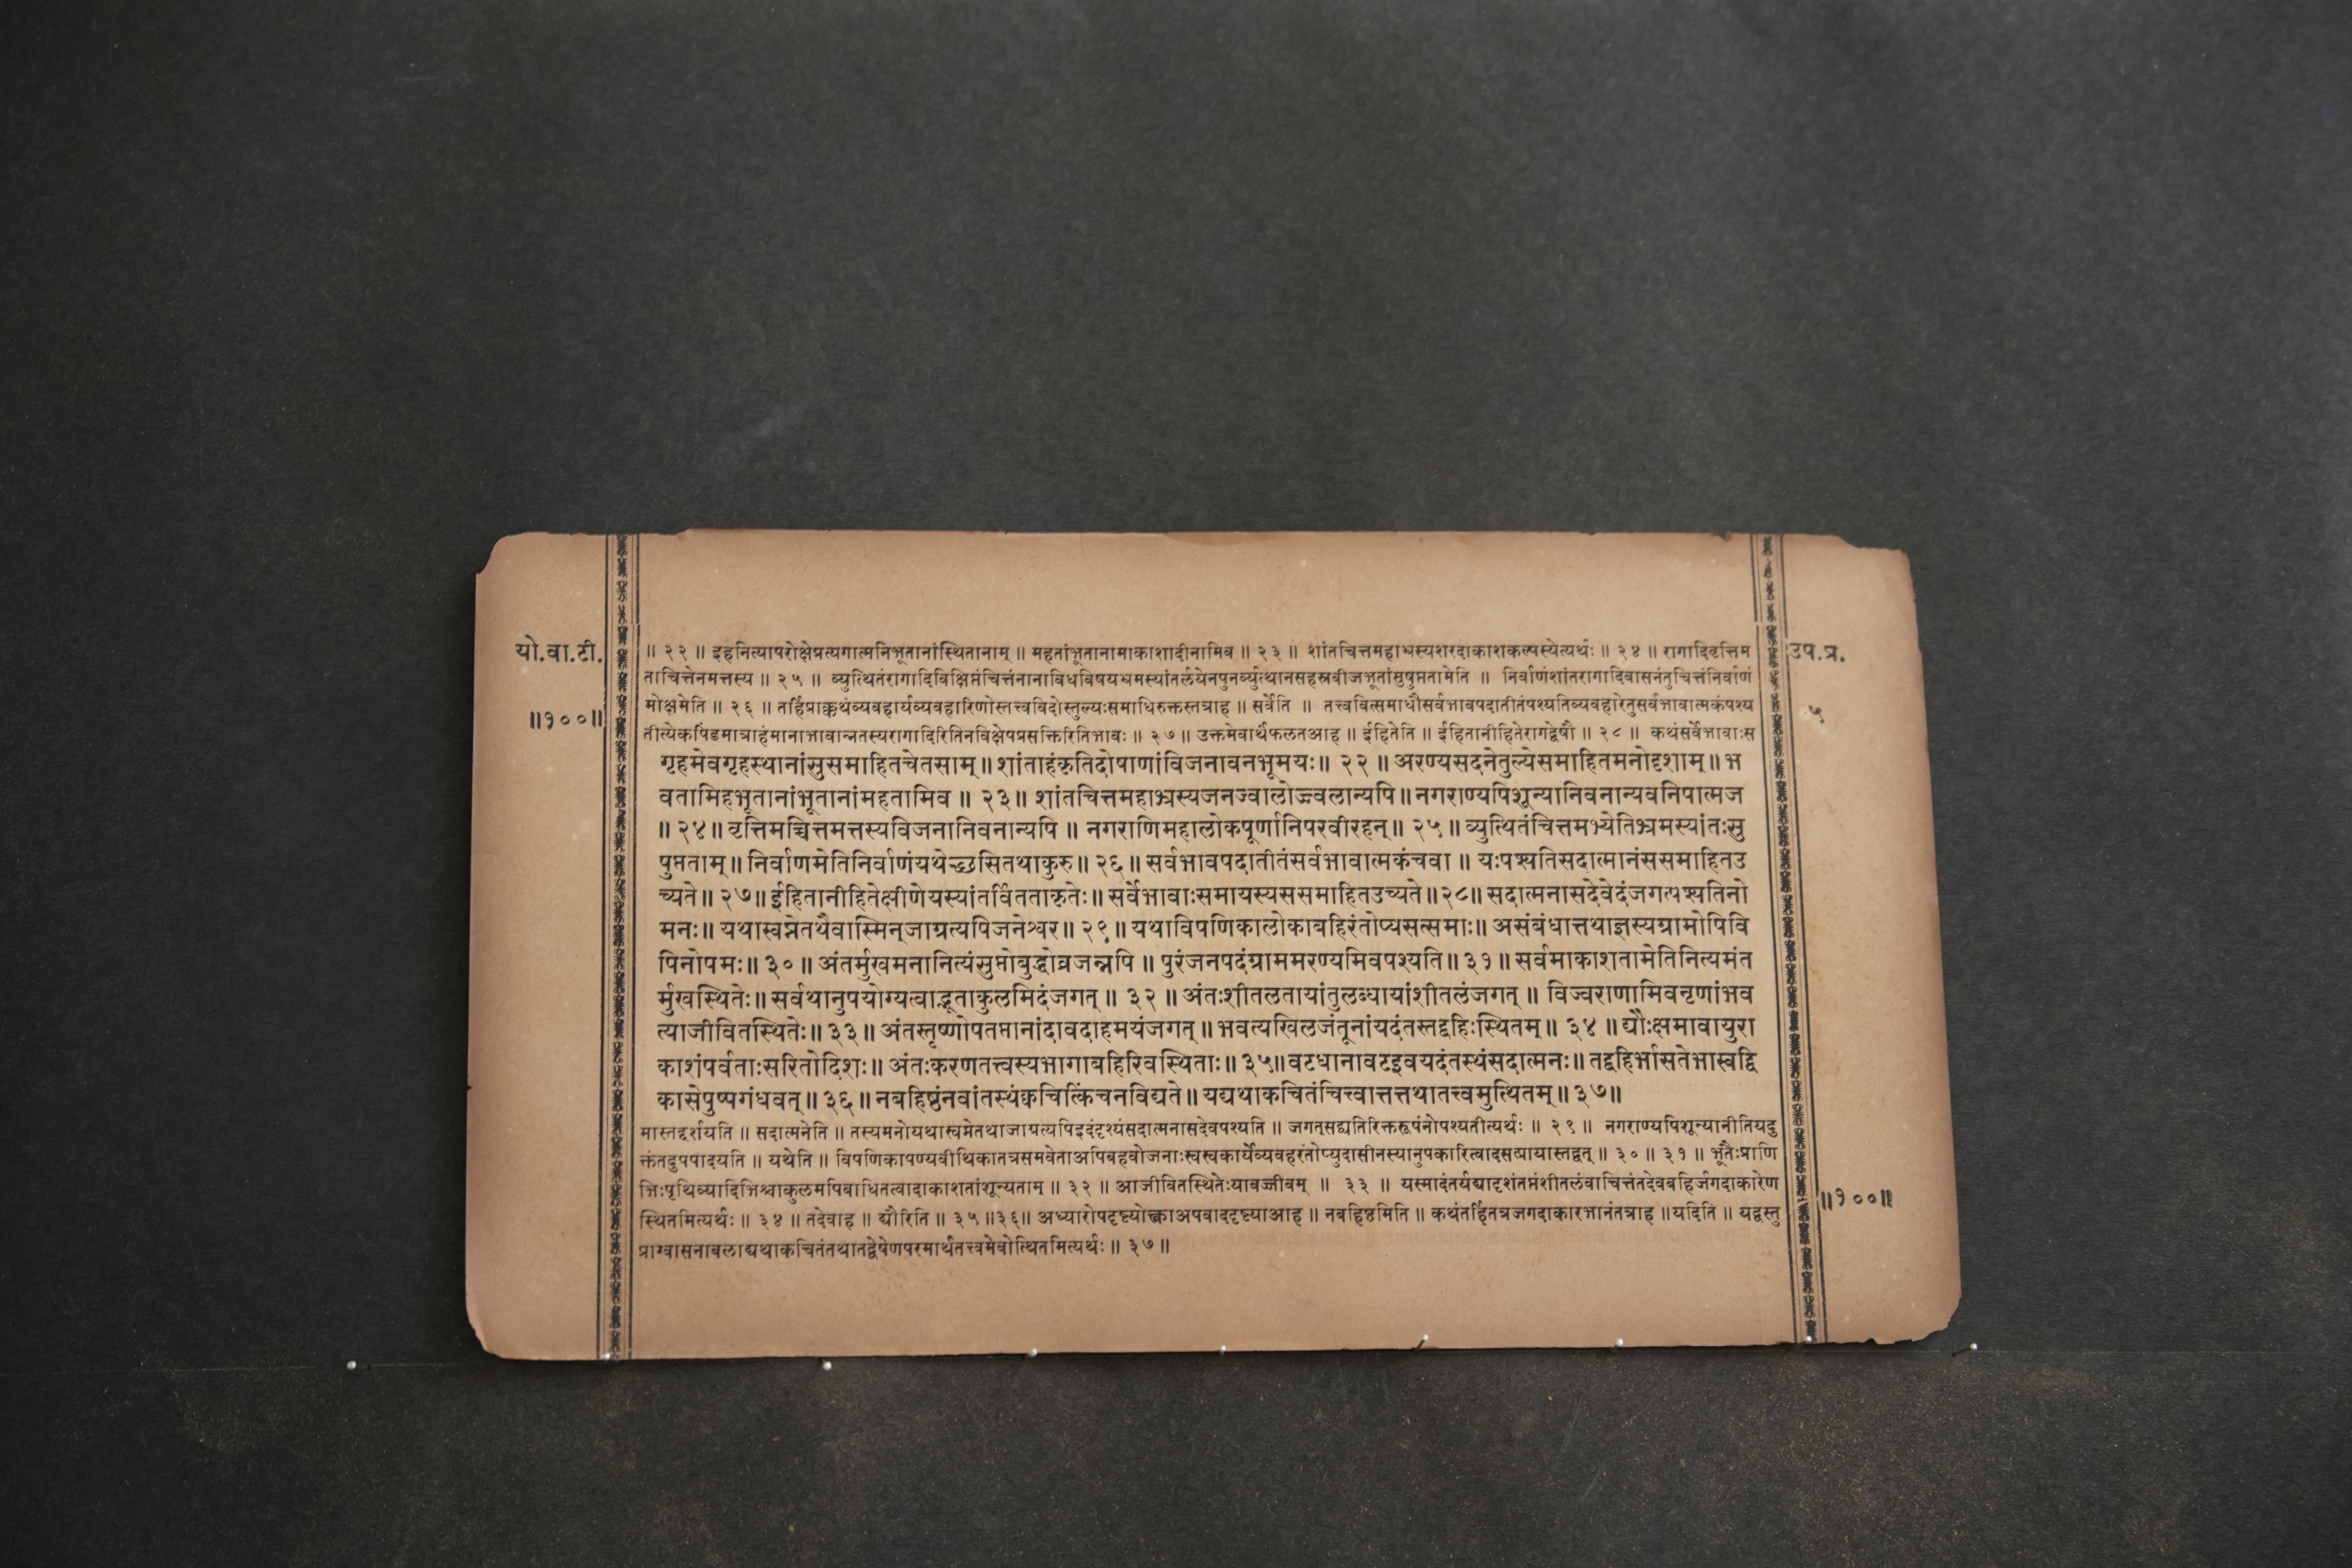 यो.वा.टी.
॥१००॥
उप.प्र.
५
॥ २२ ॥ इहनित्यापरोक्षेप्रत्यगात्मनिभूतानांस्थितानाम् ॥ महतांभूतानामाकाशादीनामिव ॥ २३ ॥ शांतचित्तमहाभ्रस्यशरदाकाशकल्पस्येत्यर्थः ॥ २४ ॥ रागादिवृत्तिम
ताचित्तेनमत्तस्य ॥ २५ ॥ व्युत्थितंरागादिविक्षिप्तंचित्तंनानाविधविषयभ्रमस्यांतर्लयेनपुनर्व्युत्थानसहस्रबीजभूतांसुषुप्ततामेति ॥ निर्वाणंशांतरागादिवासनंतुचित्तंनिर्वाणं
मोक्षमेति ॥ २६ ॥ तर्हिप्राक्कथंव्यवहार्यव्यवहारिणोस्तत्त्वविदोस्तुल्यःसमाधिरुक्तस्तत्राह ॥ सर्वेति ॥ तत्त्ववित्समाधौसर्वभावपदातीतंपश्यतिव्यवहारेतुसर्वभावात्मकंपश्य
तीत्येकपिंडमात्राहंमानाभावान्नतस्यरागादिरितिनविक्षेपप्रसक्तिरितिभावः ॥ २७ ॥ उक्तमेवार्थंफलतआह ॥ ईहितेति ॥ ईहितानीहितेरागद्वेषौ ॥ २८ ॥ कथंसर्वेभावाःस
गृहमेवगृहस्थानांसुसमाहितचेतसाम् ॥ शांताहंकृतिदोषाणांविजनावनभूमयः ॥ २२ ॥ अरण्यसदनेतुल्येसमाहितमनोदृशाम् ॥ भ
वतामिहभूतानांभूतानांमहतामिव ॥ २३ ॥ शांतचित्तमहाभ्रस्यजनज्वालोज्ज्वलान्यपि ॥ नगराण्यपिशून्यानिवनान्यवनिपात्मज
॥ २४ ॥ वृत्तिमच्चित्तमत्तस्यविजनानिवनान्यपि ॥ नगराणिमहालोकपूर्णानिपरवीरहन् ॥ २५ ॥ व्युत्थितंचित्तमभ्येतिभ्रमस्यांतःसु
षुप्तताम् ॥ निर्वाणमेतिनिर्वाणंयथेच्छसितथाकुरु ॥ २६ ॥ सर्वभावपदातीतंसर्वभावात्मकंचवा ॥ यःपश्यतिसदात्मानंससमाहितउ
च्यते ॥ २७ ॥ ईहितानीहितेक्षीणेयस्यांतर्वितताकृतेः ॥ सर्वेभावाःसमायस्यससमाहितउच्यते ॥ २८ ॥ सदात्मनासदेवेदंजगत्पश्यतिनो
मनः ॥ यथास्वप्नेतथैवास्मिन्जाग्रत्यपिजनेश्वर ॥ २९ ॥ यथाविपणिकालोकाबहिरंतोप्यसत्समाः ॥ असंबंधात्तथाज्ञस्यग्रामोपिवि
पिनोपमः ॥ ३० ॥ अंतर्मुखमनानित्यंसुप्तोबुद्धोव्रजन्नपि ॥ पुरंजनपदंग्राममरण्यमिवपश्यति ॥ ३१ ॥ सर्वमाकाशतामेतिनित्यमंत
र्मुखस्थितेः ॥ सर्वथानुपयोग्यत्वाद्भूताकुलमिदंजगत् ॥ ३२ ॥ अंतःशीतलतायांतुलब्धायांशीतलंजगत् ॥ विज्वराणामिवनृणांभव
त्याजीवितस्थितेः ॥ ३३ ॥ अंतस्तृष्णोपतप्तानांदावदाहमयंजगत् ॥ भवत्यखिलजंतूनांयदंतस्तद्बहिःस्थितम् ॥ ३४ ॥ द्यौःक्षमावायुरा
काशंपर्वताःसरितोदिशः ॥ अंतःकरणतत्त्वस्यभागाबहिरिवस्थिताः ॥ ३५ ॥ वटधानावटइवयदंतस्थंसदात्मनः ॥ तद्बहिर्भासतेभास्वद्वि
कासेपुष्पगंधवत् ॥ ३६ ॥ नबहिष्ठंनवांतस्थंक्वचित्किंचनविद्यते ॥ यद्यथाकचितंचित्त्वात्तत्तथातत्त्वमुत्थितम् ॥ ३७ ॥
मास्तद्दर्शयति ॥ सदात्मनेति ॥ तस्यमनोयथास्वप्नेतथाजाग्रत्यपिइदंदृश्यंसदात्मनासदेवपश्यति ॥ जगत्सद्व्यतिरिक्तरूपंनोपश्यतीत्यर्थः ॥ २९ ॥ नगराण्यपिशून्यानीतियदु
क्तंतदुपपादयति ॥ यथेति ॥ विपणिकापण्यवीथिकातत्रसमवेताअपिबहवोजनाःस्वस्वकार्येव्यवहरंतोप्युदासीनस्यानुपकारित्वादसत्प्रायास्तद्वत् ॥ ३० ॥ ३१ ॥ भूतैःप्राणि
भिःपृथिव्यादिभिश्चाकुलमपिबाधितत्वादाकाशतांशून्यताम् ॥ ३२ ॥ आजीवितस्थितेःयावज्जीवम् ॥ ३३ ॥ यस्मादंतर्यद्यादृशंतप्तंशीतलंवाचित्तंतदेवबहिर्जगदाकारेण
स्थितमित्यर्थः ॥ ३४ ॥ तदेवाह ॥ द्यौरिति ॥ ३५ ॥३६॥ अध्यारोपदृष्ट्योक्त्वाअपवाददृष्ट्याआह ॥ नबहिष्ठमिति ॥ कथंतर्हितत्रजगदाकारभानंतत्राह ॥ यदिति ॥ यद्वस्तु
प्राग्वासनाबलाद्यथाकचितंतथातद्वेषेणपरमार्थतत्त्वमेवोत्थितमित्यर्थः ॥ ३७ ॥
॥१००॥